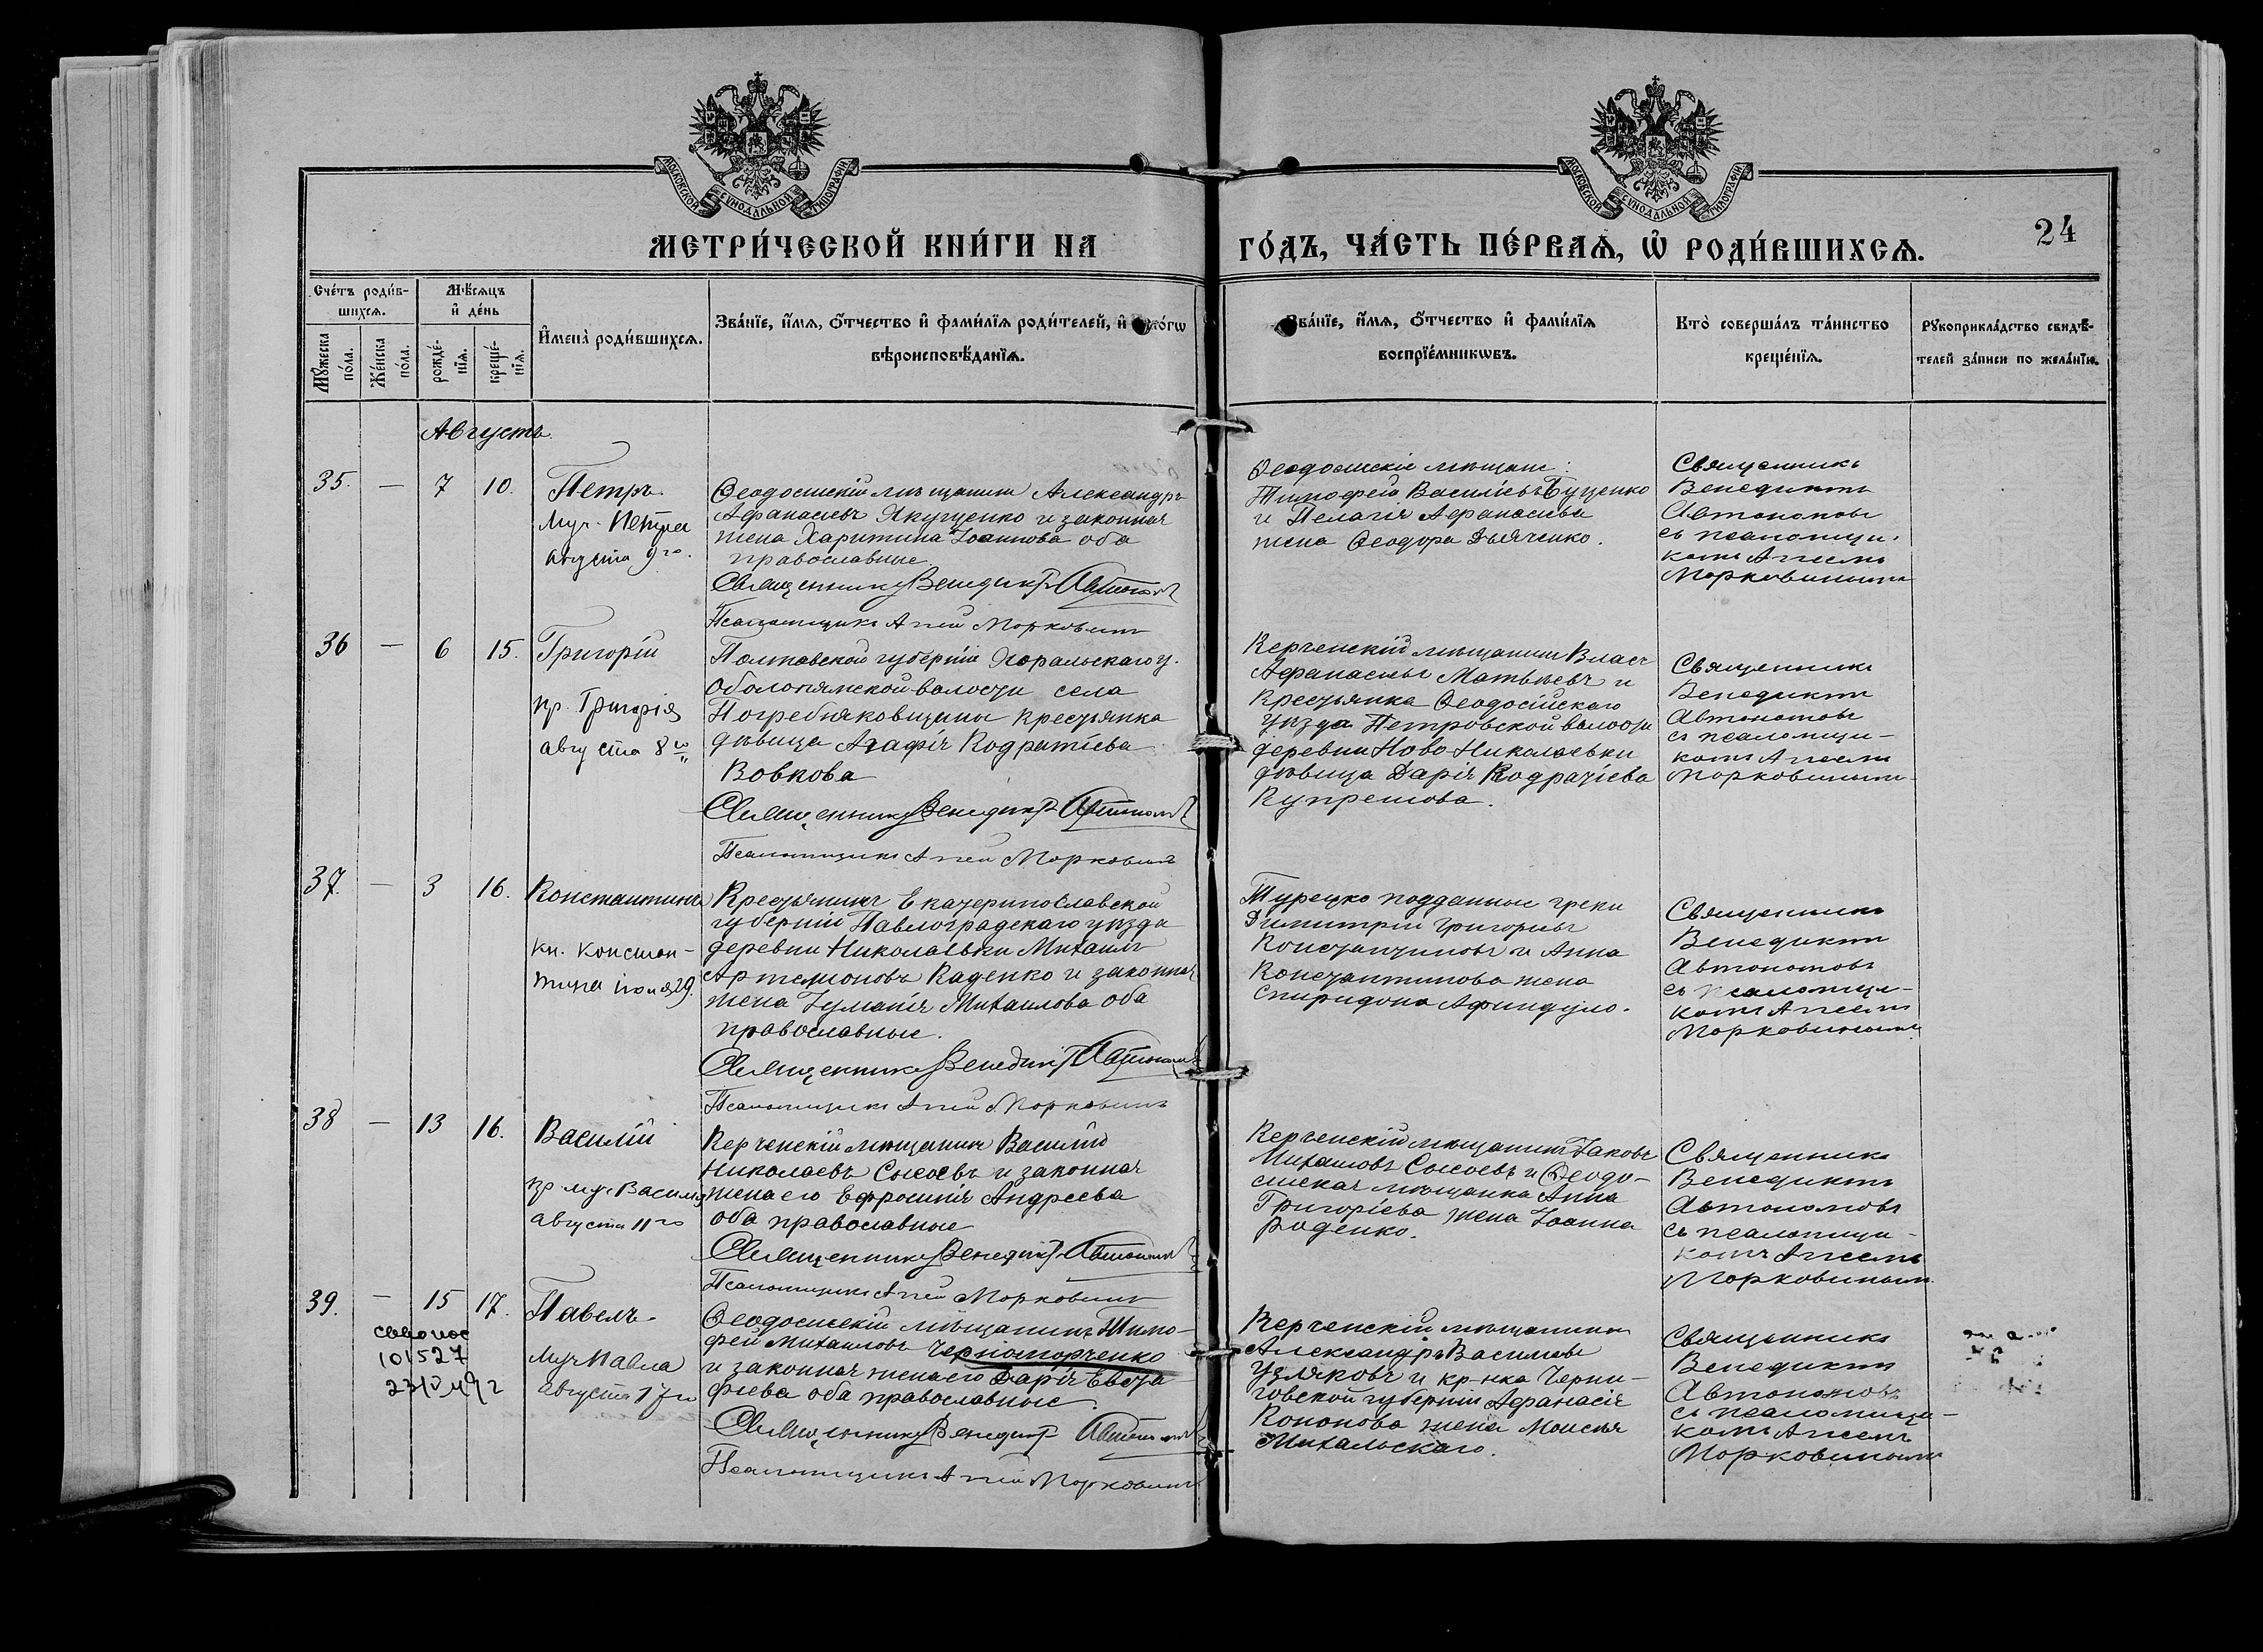 МОСКОВСКОЙ СУНОДАЛЬНОЙ ТИПОГРАФІИ
МОСКОВСКОЙ СУНОДАЛЬНОЙ ТИПОГРАФІИ
МЕТРИ́ЧЕСКОЙ КНИ́ГИ НА
ГО́ДЪ, ЧА́СТЬ ПЕ́РВАѦ, Ѡ҆ РОДИ́ВШИХСѦ.
24
Сче́тъ роди́в-
шихсѧ.
Мѣ́сѧцъ
и҆ де́нь
Мꙋ́жеска
по́ла.
Же́нска
по́ла.
рожде́-
нїѧ.
креще́-
нїѧ.
И҆мена̀ роди́вшихсѧ.
Зва́нїе, и҆́мѧ, ѻ҆́тчество и҆ фами́лїѧ роди́телей, и҆
вѣроисповѣ́данїѧ.
Зва́нїе, и҆́мѧ, ѻ҆́тчество и҆ фами́лїѧ
воспрїе́мникѡвъ.
Кто̀ соверша́лъ та́инство
креще́нїѧ.
Рꙋкоприкла́дство свидѣ́-
телей за́писи по жела́нїю.
Августъ.
35. — 7 10.
Петръ.
Муч. Петра
августа 9го.
Ѳеодосійскій мѣщанинъ Александръ
Афанасіевъ Якущенко и законная
жена Харитина Іоаннова оба
православные
Священникъ Венедиктъ Автономовъ
Псаломщикъ Аггей Морковинъ
Ѳеодосійскіе мѣщане:
Тимофей Василіевъ Буценко
и Пелагія Афанасіева
жена Ѳеодора Дьяченко.
Священникъ
Венедиктъ
Автономовъ
съ псаломщи-
комъ Аггеемъ
Морковинымъ
36 — 6 15.
Григорій
пр. Григорія
августа 8го
Полтавской губерніи Хорольскаго у.
Оболонянской волости села
Погребняковщины крестьянка
дѣвица Агафія Кодратіева
Вовкова
Священникъ Венедиктъ Автономовъ
Псаломщикъ Аггей Морковинъ
Керченскій мѣщанинъ Власъ
Афанасіевъ Матвѣевъ и
крестьянка Ѳеодосійскаго
уѣзда Петровской волости
деревни Ново Николаевки
дѣвица Дарія Кодратіева
Купрешова.
Священникъ
Венедиктъ
Автономовъ
съ псаломщи-
комъ Аггеемъ
Морковинымъ
37. — 3 16.
Константинъ
кн. Констан-
тина іюля 29.
Крестьянинъ Екатеринославской
губерніи Павлоградскаго уѣзда
деревни Николаевки Михаилъ
Артемоновъ Каденко и законная
жена Іуліанія Михаилова оба
православные.
Священникъ Венедиктъ Автономовъ
Псаломщикъ Аггей Морковинъ
Турецко подданные греки
Димитрій Григорьевъ
Константиновъ и Анна
Константинова жена
Спиридона Афиндуло.
Священникъ
Венедиктъ
Автономовъ
съ псаломщи-
комъ Аггеемъ
Морковинымъ
38 — 13 16.
Василій
пр. муч. Василія
августа 11го
Керченскій мѣщанинъ Василій
Николаевъ Сысоевъ и законная
жена его Ефросинія Андреева
оба православные
Священникъ Венедиктъ Автономовъ
Псаломщикъ Аггей Морковинъ
Керченскій мѣщанинъ Іаковъ
Михаиловъ Сысоевъ и Ѳеодо-
сійская мѣщанка Анна
Григоріева жена Іоанна
Роденко.
Священникъ
Венедиктъ
Автономовъ
съ псаломщи-
комъ Аггеемъ
Морковинымъ
39. — 15 17.
101527
Павелъ.
Муч Павла
августа 17го
Ѳеодосійскій мѣщанинъ Тимо-
фей Михаиловъ Черноморченко
и законная жена его Дарія Евста-
фіева оба православные
Священникъ Венедиктъ Автономовъ
Псаломщикъ Аггей Морковинъ
Керченскій мѣщанинъ
Александръ Василіевъ
Узляковъ и кр-нка Черни-
говской губерніи Афанасія
Кононова жена Моисея
Михальскаго.
Священникъ
Венедиктъ
Автономовъ
съ псаломщи-
комъ Аггеемъ
Морковинымъ